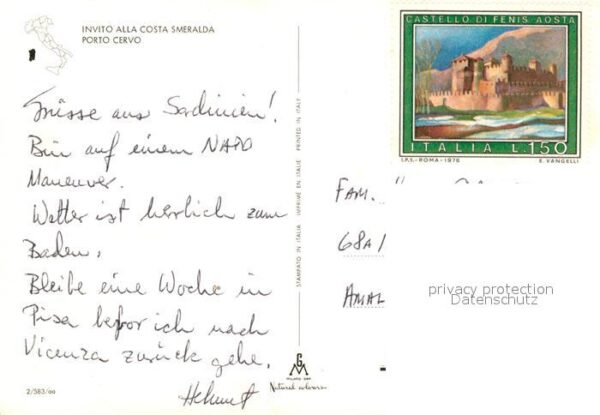 INVITO ALLA COSTA SMERALDA
PORTO CERVO
Grüsse aus Sardinien!
Bin auf einem NATO
Maneuver.
Wetter ist herrlich zum
Baden.
Bleibe eine Woche in
Pisa befor ich nach
Vicenza zurück gehe.
Helmut
2/583/aa
STAMPATO IN ITALIA IMPRIMÉ EN ITALIE PRINTED IN ITALY
MILANO
Natural colours
CASTELLO DI FENIS, AOSTA
ITALIA L.150
I.P.S.-ROMA-1976 E. VANGELLI
FAM.
68A/
AMAL
privacy protection
Datenschutz